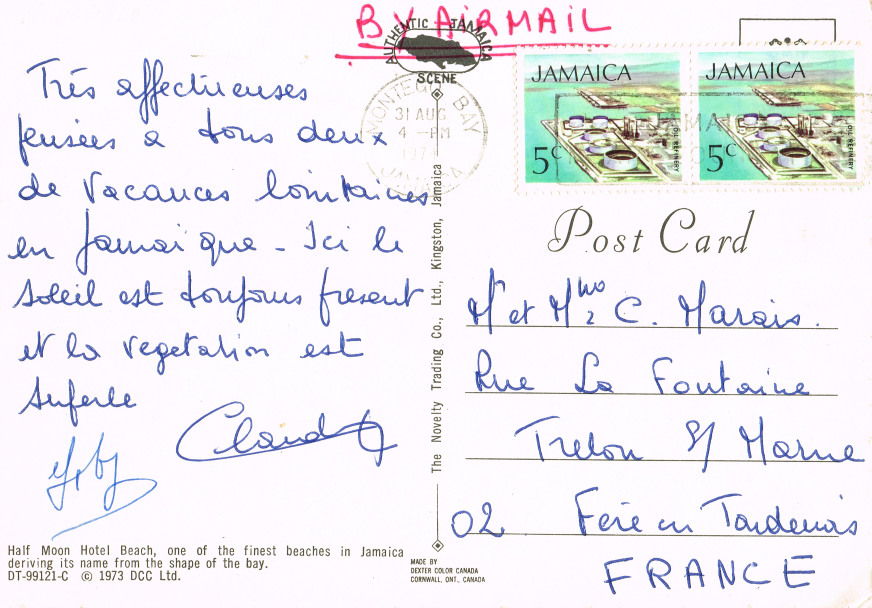 BY AIRMAIL
AUTHENTIC JAMAICA
SCENE
JAMAICA
5c
OIL REFINERY
JAMAICA
5c
OIL REFINERY
MONTEGO BAY
31 AUG
4 - PM
JAMAICA
Très affectueuses
pensées a tous deux
de Vacances lointaines
en Jamaïque - Ici le
soleil est toujours present
et la vegetation est
superbe
Claude
The Novelty Trading Co., Ltd., Kingston, Jamaica
Post Card
Mr et Mme C. Marais.
Rue La Fontaine
Trelou S/ Marne
02 Fere en Tardenois
FRANCE
Half Moon Hotel Beach, one of the finest beaches in Jamaica
deriving its name from the shape of the bay.
DT-99121-C © 1973 DCC Ltd.
MADE BY
DEXTER COLOR CANADA
CORNWALL, ONT., CANADA